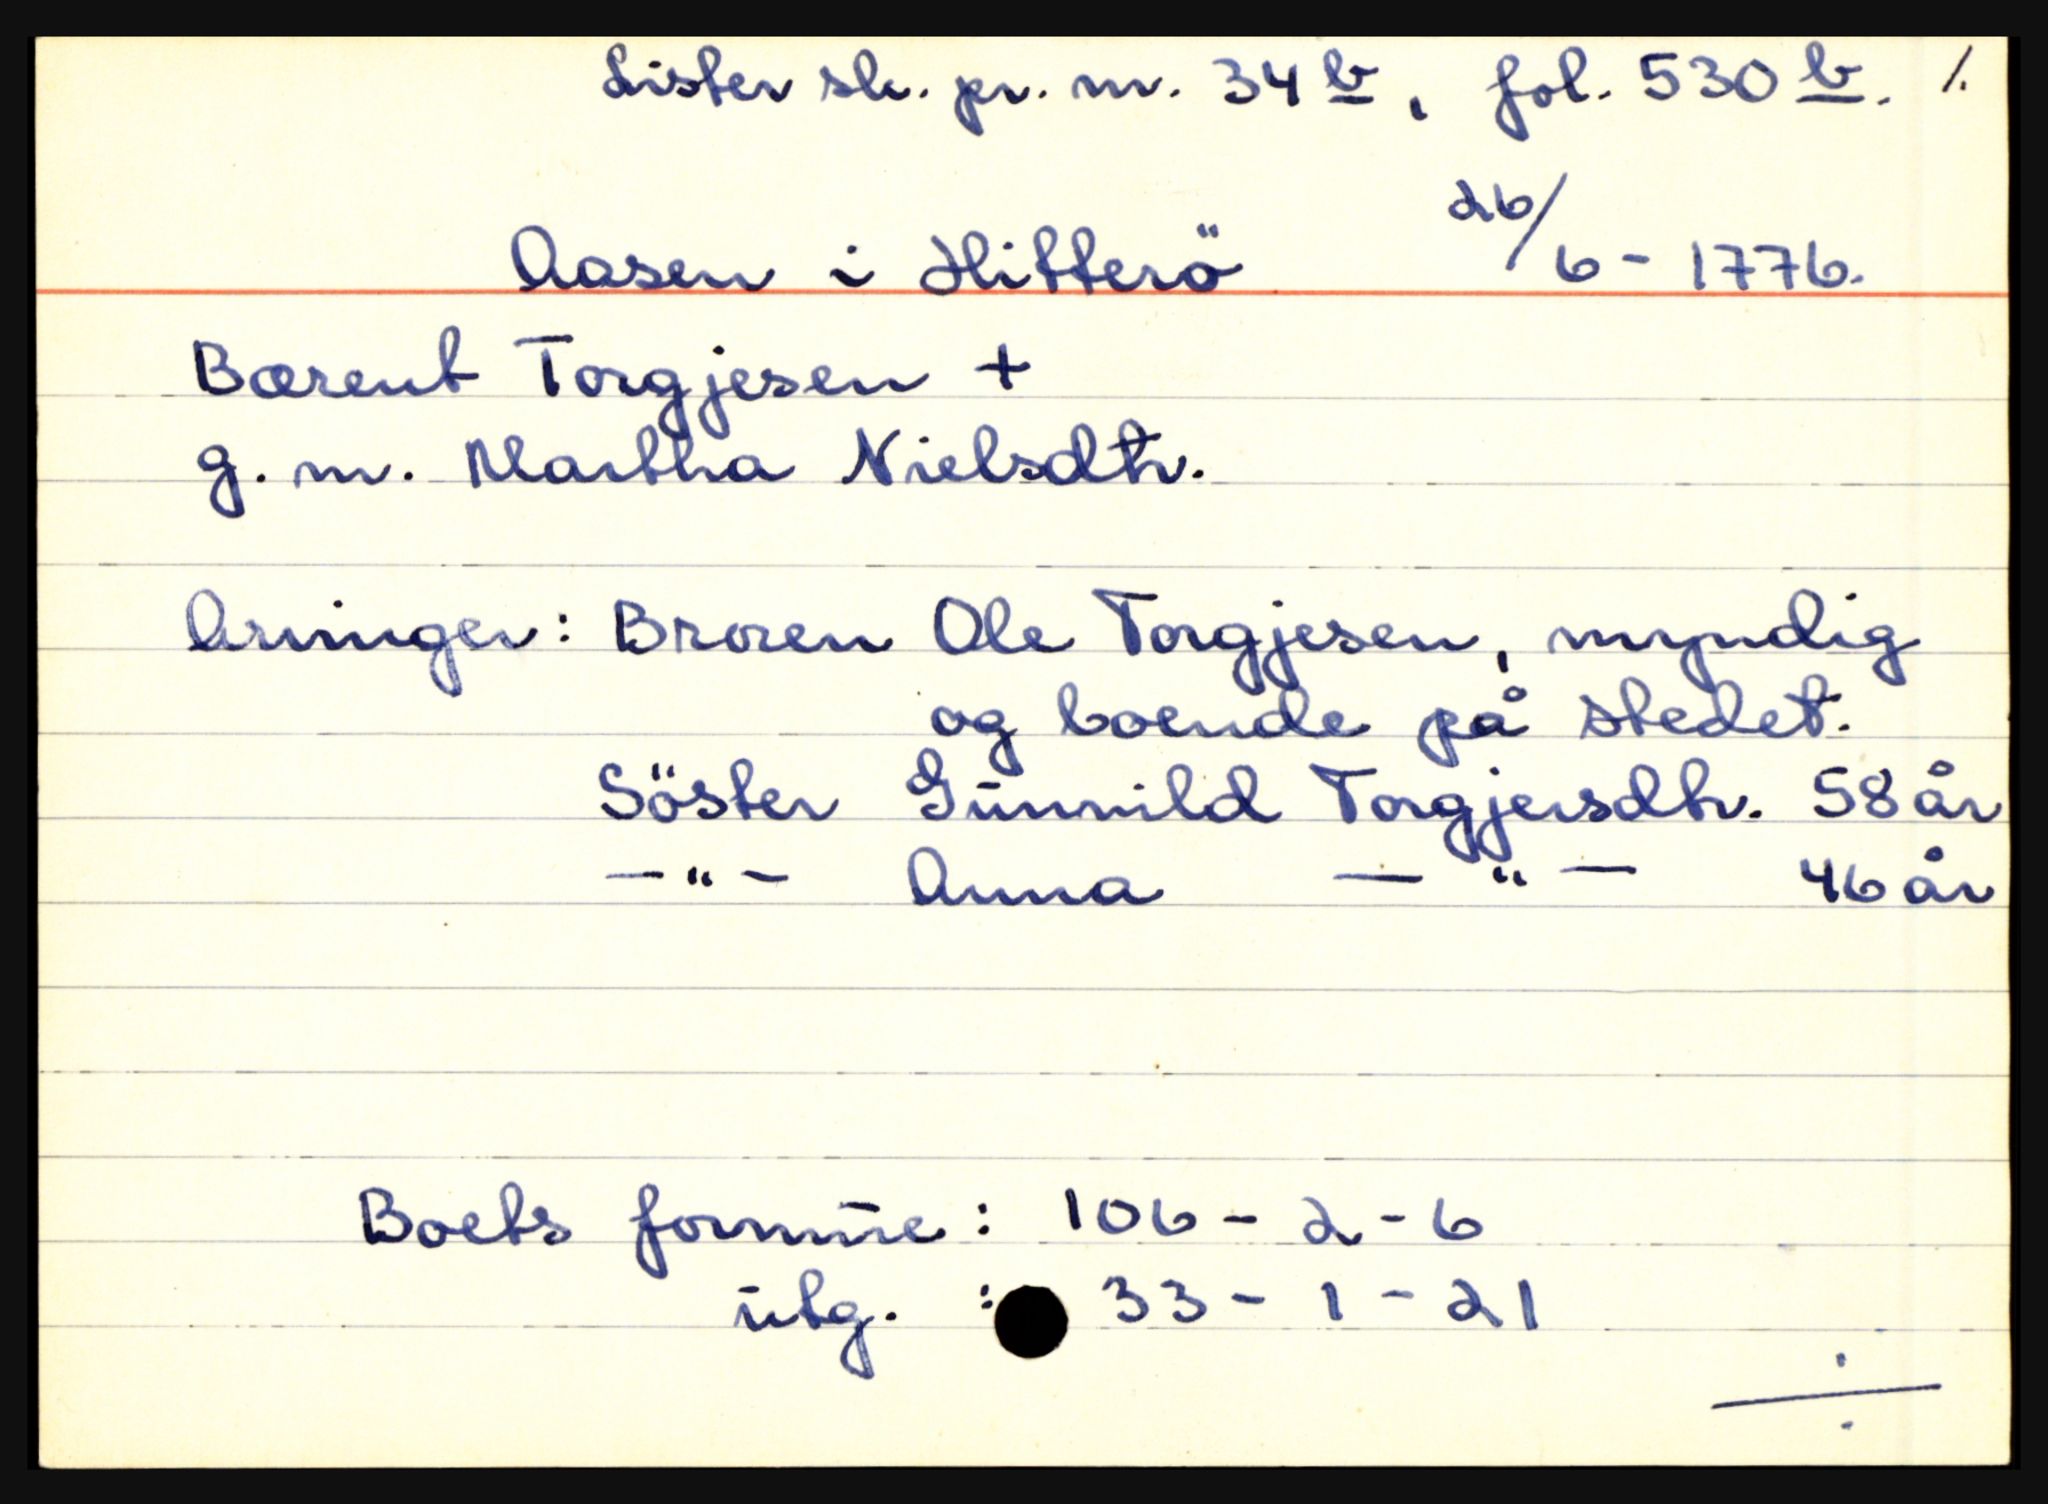 Lister sk. pr. nr. 34 b, fol. 530 b. /.
Aasen i Hitterö
26/6 - 1776.
Bærent Torgjesen +
g. m. Martha Nielsdtr.
Arvinger: Broren Ole Torgjesen, myndig
og boende på stedet.
Söster Gunnild Torgjersdtr. 58 år
— " — Anna — " — 46 år
Boets formue: 106 - 2 - 6
utg. : 33 - 1 - 21